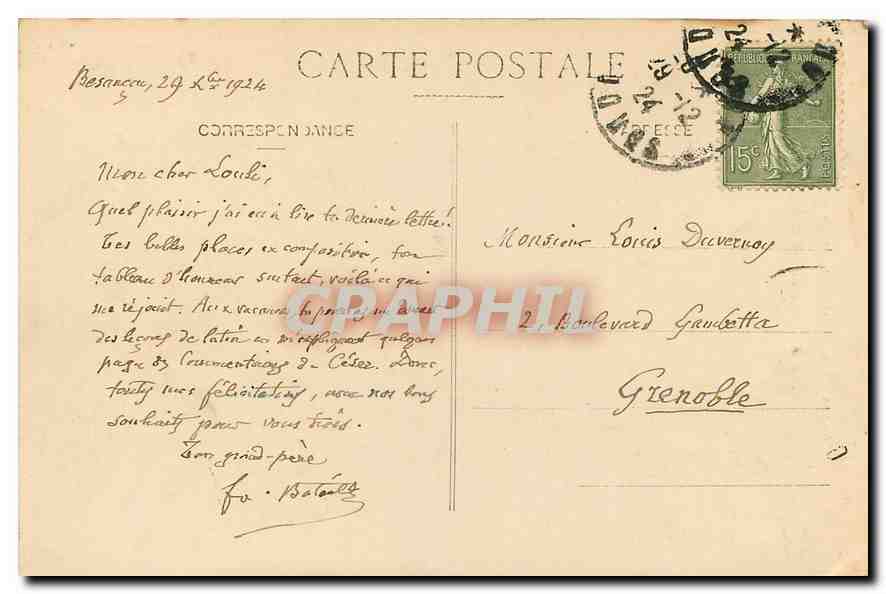 CARTE POSTALE
Besançon, 29 Xbre 1924
CORRESPONDANCE
ADRESSE
Mon cher Loulou,
Quel plaisir j'ai eu à lire ta dernière lettre!
Tes belles places ex composition, ton
tableau d'honneur surtout, voilà ce qui
me réjouit. Aux vacances, tu pourras me donner
des leçons de latin en m'expliquant quelques
pages des Commentaires de César. Donc,
toutes mes félicitations, avec nos bons
souhaits pour vous trois.
Ton grand-père
Monsieur Louis Duvernoy
2, Boulevard Gambetta
Grenoble
REPUBLIQUE FRANÇAISE
15c
POSTES
DOUBS
24
-12
DOUBS
24
-12
CPAPHIL